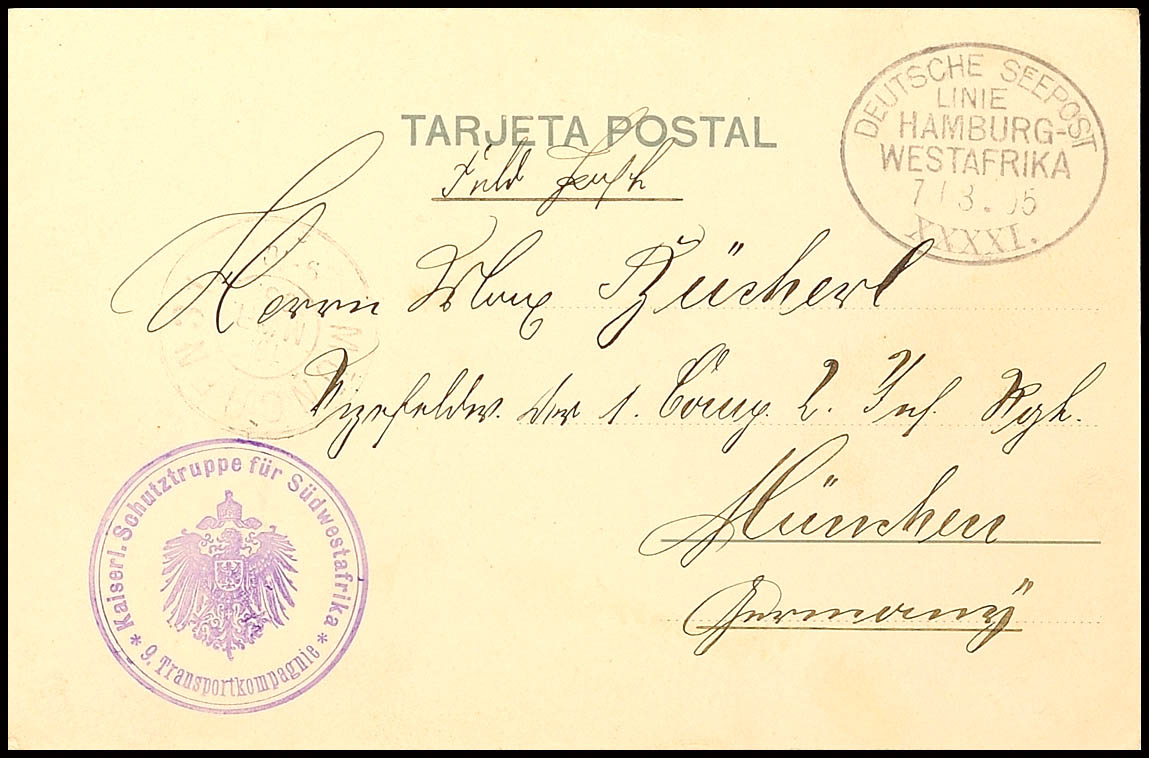 TARJETA POSTAL
DEUTSCHE SEEPOST
LINIE
HAMBURG-
WESTAFRIKA
7/3.05
XXXXI.
Feld Post
Herrn Max Bücherl
Vizefeldw. der 1. Comp. 2. Inf. Rgt.
München
Germany
MÜNCHEN
* Kaiserl. Schutztruppe für Südwestafrika *
9. Transportkompagnie